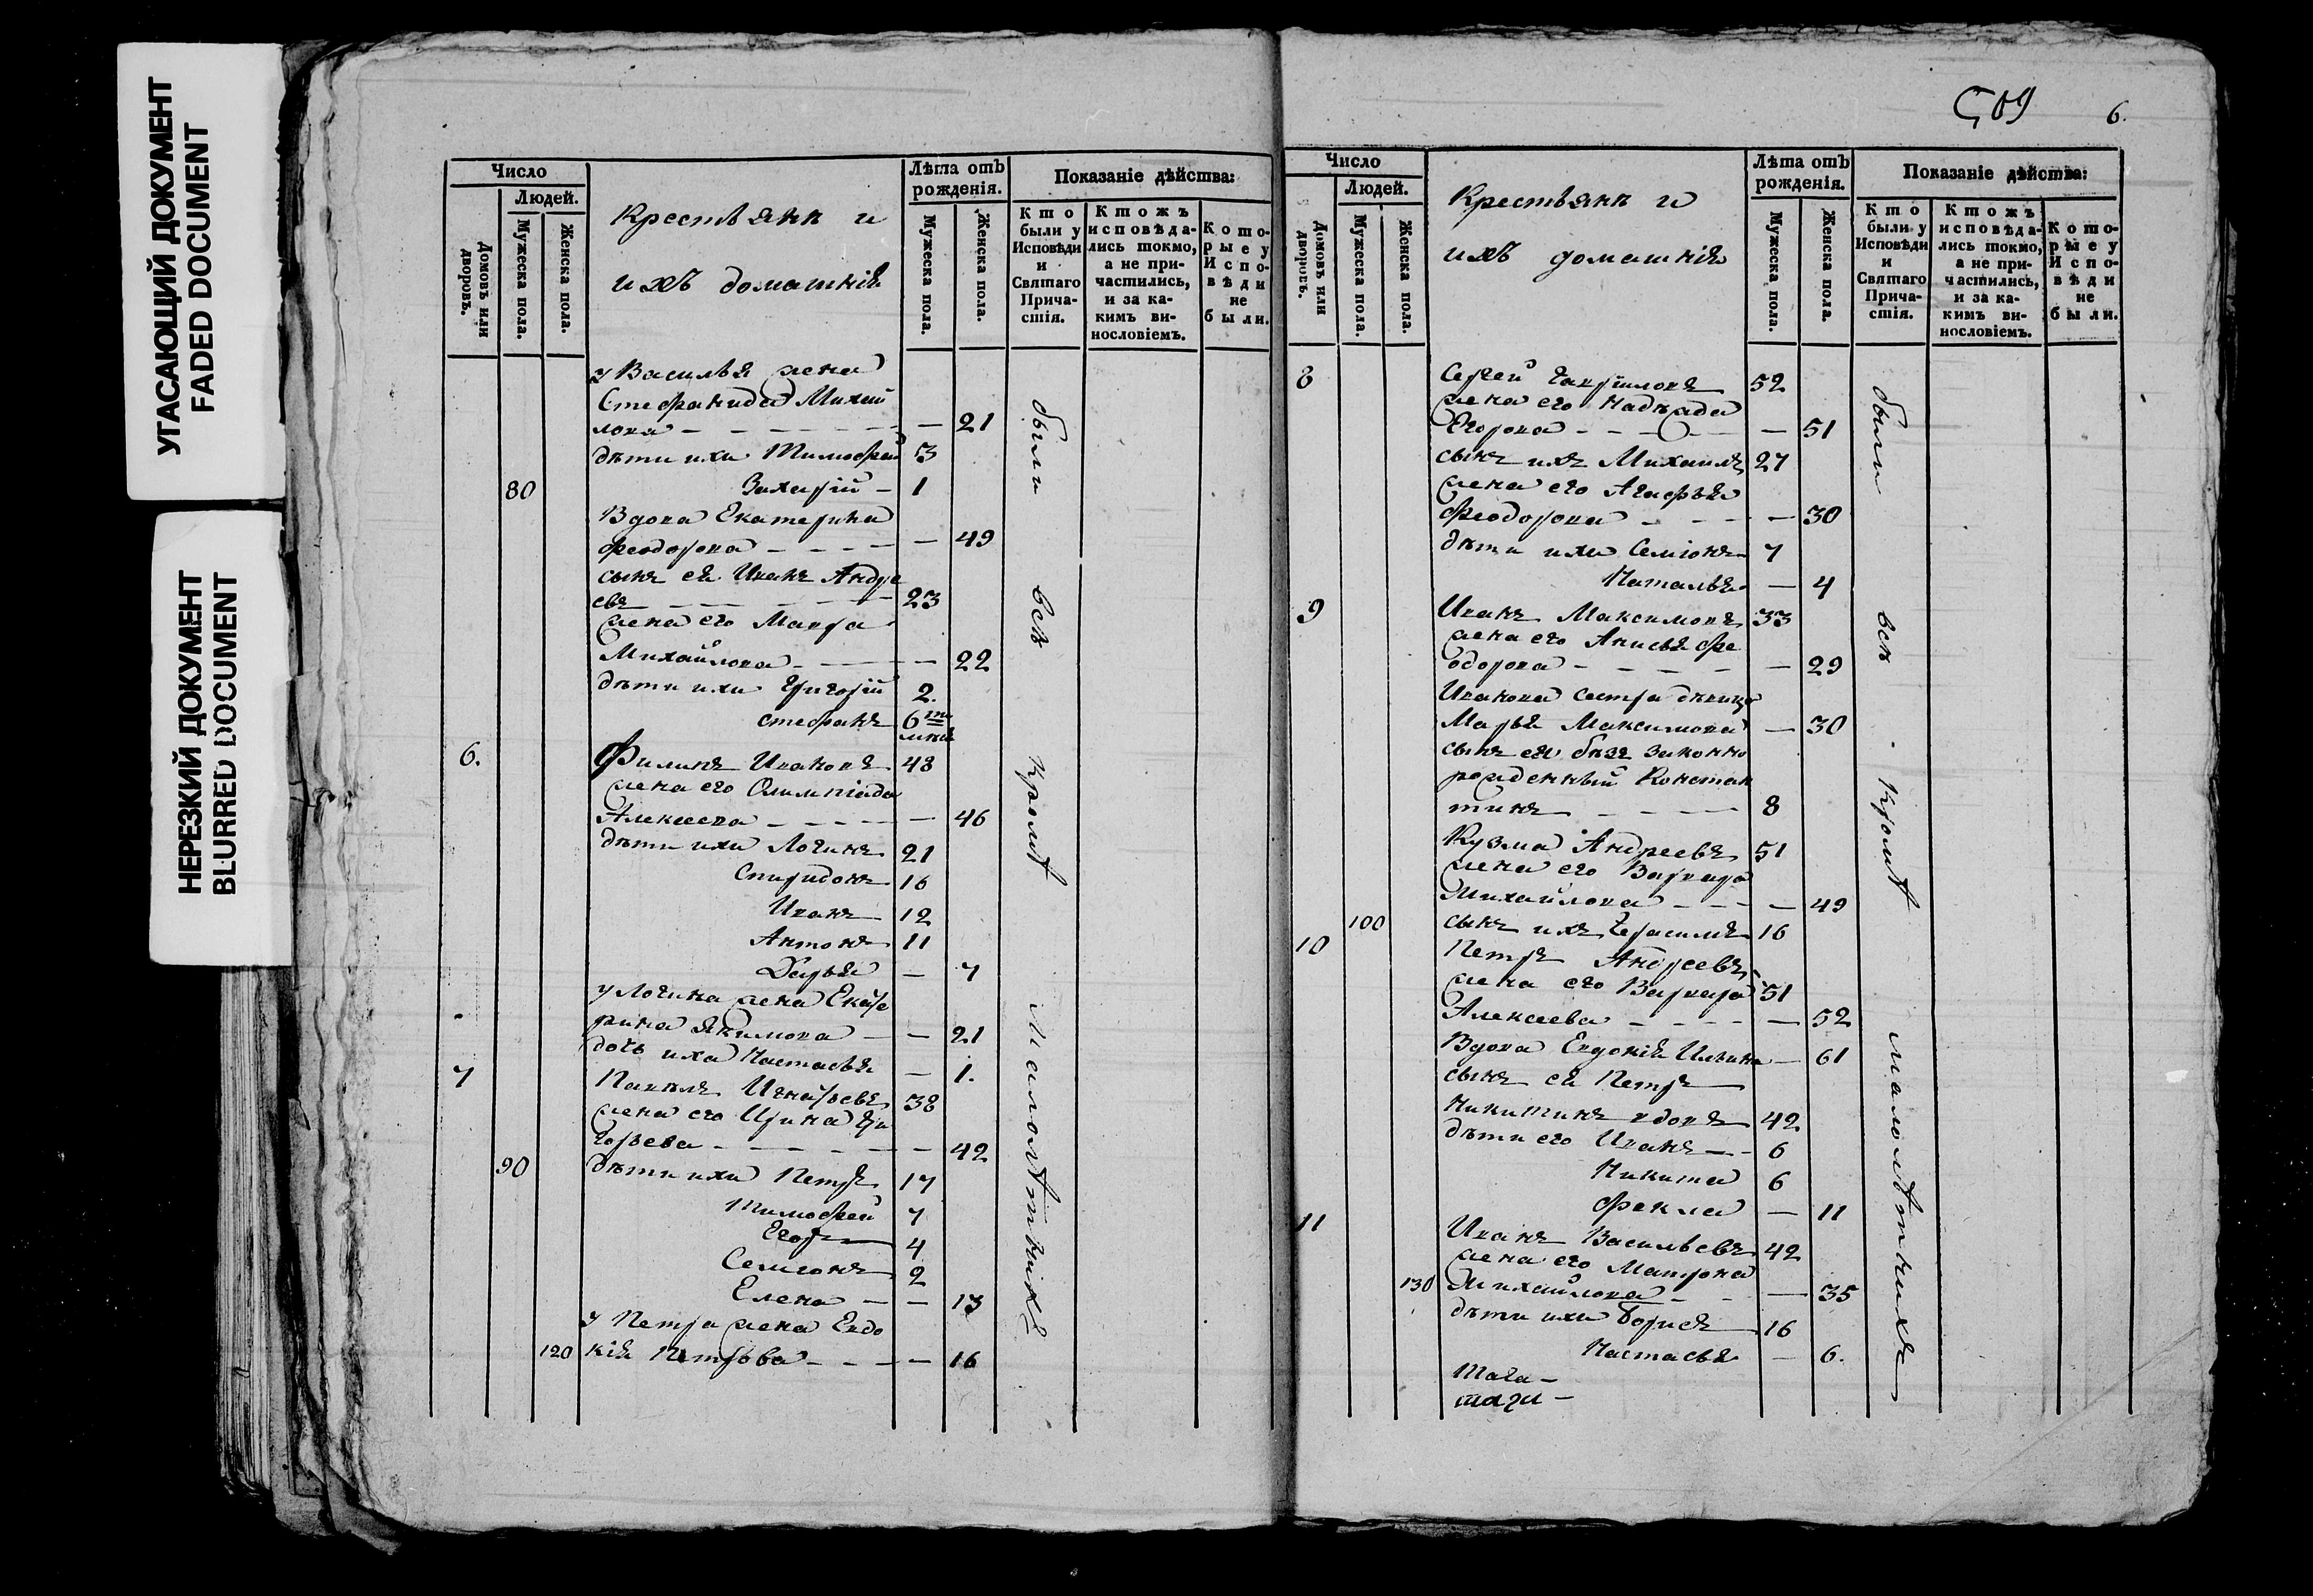 УГАСАЮЩИЙ ДОКУМЕНТ
FADED DOCUMENT
НЕРЕЗКИЙ ДОКУМЕНТ
BLURRED DOCUMENT
Число
Людей.
Домовъ или дворовъ.
Мужеска пола.
Женска пола.
Крестьянъ и
ихъ домашнія
Лѣта отъ
рожденія.
Мужеска пола.
Женска пола.
Показаніе дѣйства:
Кто
были у
Исповѣди
и
Святаго
Прича-
стія.
Ктожъ
исповѣда-
лись токмо,
а не при-
частились,
и за ка-
кимъ ви-
нословіемъ.
Кото-
рые у
Испо-
вѣди
не
были.
у Василья жена
Стефанида Михай
лова — 21
дѣти ихъ Тимофей 3
80 Захарій — 1
Вдова Екатерина
Феодорова — 49
сынъ ея Иванъ Андре
евъ 23
жена его Мавра
Михайлова — 22
дѣти ихъ Григорій 2
Стефанъ 6
6. Филипъ Ивановъ 48
жена его Олимпіада
Алексеева — 46
дѣти ихъ Логинъ 21
Спиридонъ 16
Иванъ 12
Антонъ 11
Дарья — 7
у Логина жена Екате
рина Якимова — 21
дочь ихъ Настасья — 1.
7 Павелъ Игнатьевъ 38
жена его Ирина Гри
горьева — 42
90 дѣти ихъ Петръ 17
Тимофей 7
Егоръ 4
Семионъ 2
Елена — 13
у Петра жена Евдо
120 кія Петрова — 16
были всѣ кромѣ малолѣтнихъ
509 6.
Число
Людей.
Домовъ или дворовъ.
Мужеска пола.
Женска пола.
Крестьянъ и
ихъ домашнія
Лѣта отъ
рожденія.
Мужеска пола.
Женска пола.
Показаніе дѣйства:
Кто
были у
Исповѣди
и
Святаго
Прича-
стія.
Ктожъ
исповѣда-
лись токмо,
а не при-
частились,
и за ка-
кимъ ви-
нословіемъ.
Кото-
рые у
Испо-
вѣди
не
были.
8 Сергей Гаврииловъ 52
жена его Надежда
Егорова — 51
сынъ ихъ Михаилъ 27
жена его Агафья
Феодорова — 30
дѣти ихъ Семіонъ 7
Наталья — 4
9 Иванъ Максимовъ 33
жена его Анисья Фе
одорова — 29
Иванова сестра дѣвица
Марья Максимова — 30
сынъ ея безъ законно
рожденный Констан
тинъ 8
Кузма Андреевъ 51
жена его Варвара
Михайлова — 49
100 сынъ ихъ Герасимъ 16
10 Петръ Андреевъ
жена его Варвара 51
Алексеева — 52
Вдова Евдокія Ильина — 61
сынъ ея Петръ
Никитинъ вдовъ 42
дѣти его Иванъ 6
Никита 6
Фекла — 11
11 Иванъ Васильевъ 42
жена его Матрона
130 Михайлова — 35
дѣти ихъ Борисъ 16
Настасья — 6.
были всѣ кромѣ малолѣтнихъ